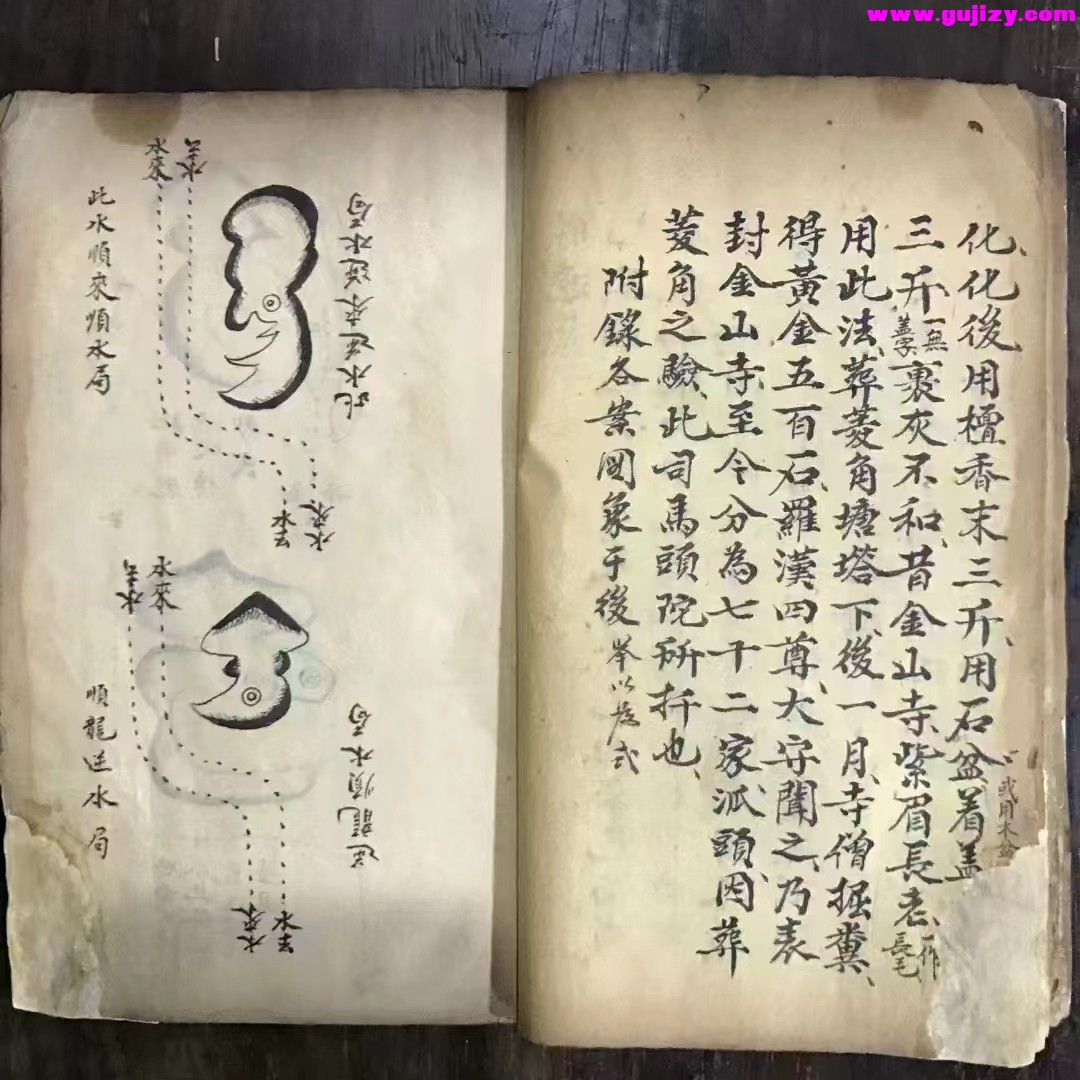 www.gujizy.com
化、化後用檀香末三斤、用石盆着盖
或用木盆
三斤、一無盖字裹灰不和、昔金山寺紫眉長老、一作長毛
用此法葬菱角塘塔下、後一月、寺僧掘糞、
得黃金五百石、羅漢四尊、大守聞之、乃表
封金山寺、至今分為七十二家派頭、因葬
菱角之驗、此司馬頭陀所扦也、
附錄各案圖象于後 举以為式
此水逆來逆水局
水去
水來
水來
水去
此水順來順水局
逆龍順水局
水來
水去
水去
水來
順龍逆水局